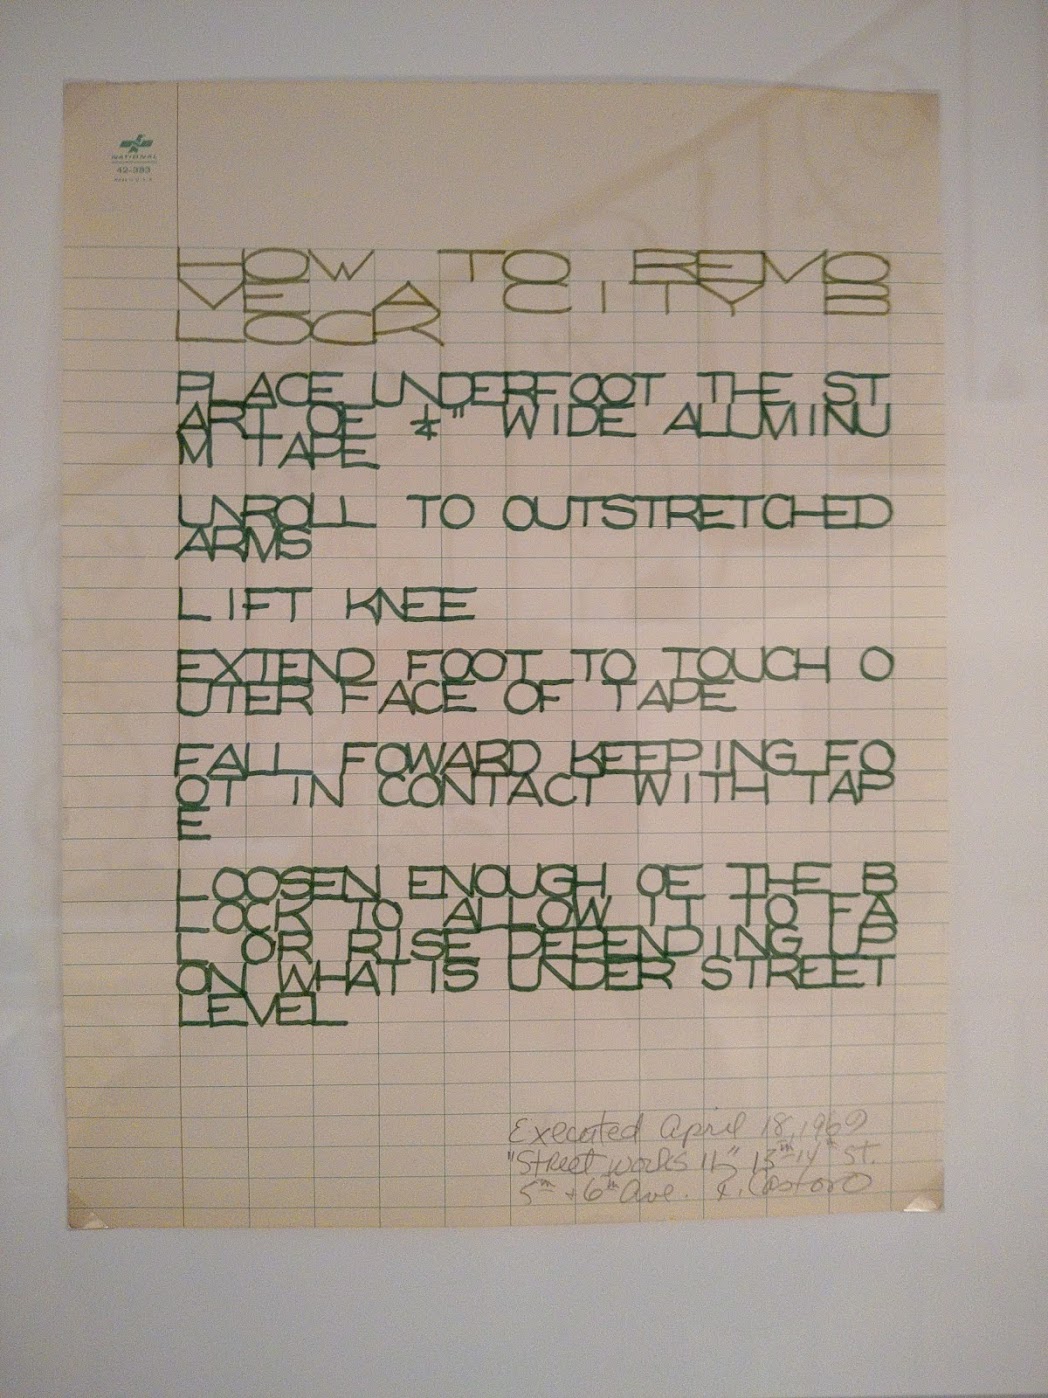 NATIONAL
42-393
MADE IN U.S.A.
HOW TO REMO
VE A CITY B
LOCK
PLACE UNDERFOOT THE ST
ART OF " WIDE ALUMINU
M TAPE
UNROLL TO OUTSTRETCHED
ARMS
LIFT KNEE
EXTEND FOOT TO TOUCH O
UTER FACE OF TAPE
FALL FOWARD KEEPING FO
OT IN CONTACT WITH TAP
E
LOOSEN ENOUGH OF THE B
LOCK TO ALLOW IT TO FA
L OR RISE DEPENDING UP
ON WHAT IS UNDER STREET
LEVEL
Executed April 18, 1969
"Street Works II" 13th-14th St.
5th + 6th Ave. R. Castoro